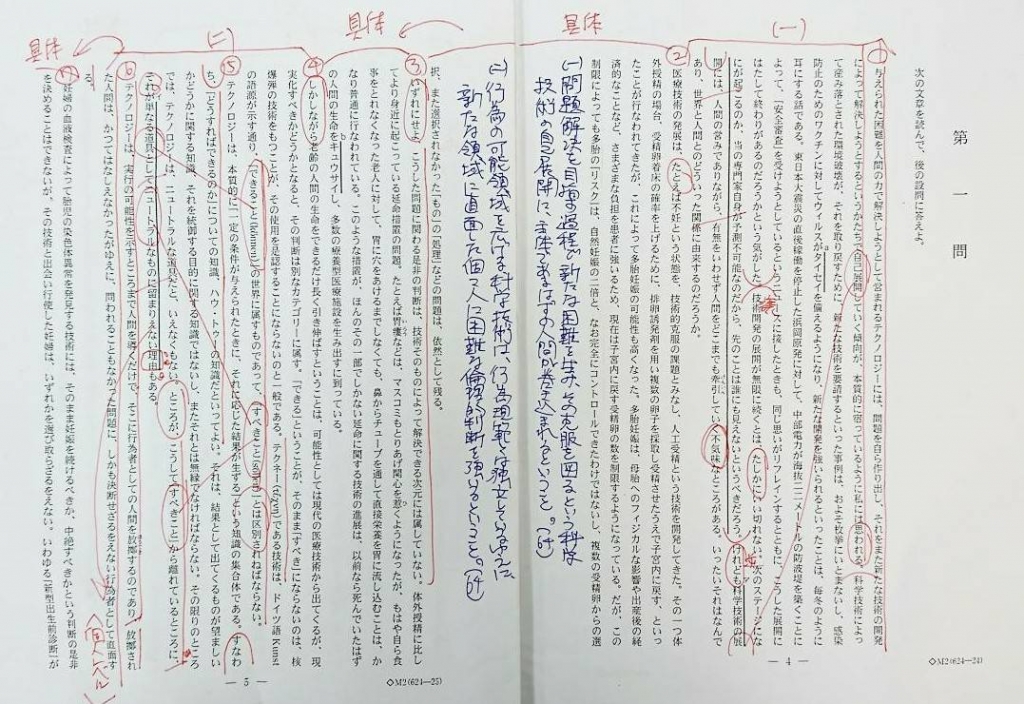 第一問
次の文章を読んで、後の設問に答えよ。
(一)
具体
①
与えられた困難を人間の力で解決しようとして営まれるテクノロジーには、問題を自ら作り出し、それをまた新たな技術の開発
によって解決しようとするというかたちで自己展開していく傾向が、本質的に宿っているように私には思われる。科学技術によっ
て産み落とされた環境破壊が、それを取り戻すために、新たな技術を要請するといった事例は、およそ枚挙にいとまないし、感染
防止のためのワクチンに対してウィルスがタイセイを備えるようになり、新たな開発を強いられるといったことは、毎冬のように
耳にする話である。東日本大震災の直後稼働を停止した浜岡原発に対して、中部電力が海抜二二メートルの防波堤を築くことに
よって、「安全審査」を受けようとしているというニュースに接したときも、同じ思いがリフレインするとともに、こうした展開に
はたして終わりがあるのだろうかという気がした。技術開発の展開が無限に続くとは、たしかにいい切れない。次のステージにな
にが起こるのか、当の専門家自身が予測不可能なのだから、先のことは誰にも見えないというべきだろう。けれども科学技術の展
開には、人間の営みでありながら、有無をいわせず人間をどこまでも牽引していく不気味なところがある。いったいそれはなんで
あり、世界と人間とのどういった関係に由来するのだろうか。
②
医療技術の発展は、たとえば不妊という状態を、技術的克服の課題とみなし、人工受精という技術を開発してきた。その一つ体
外受精の場合、受精卵着床の確率を上げるために、排卵誘発剤を用い複数の卵子を採取し受精させたうえで子宮内に戻す、といっ
たことが行なわれてきたが、これによって多胎妊娠の可能性も高くなった。多胎妊娠は、母胎へのフィジカルな影響や出産後の経
済的なことなど、さまざまな負担を患者に強いるため、現在は子宮内に戻す受精卵の数を制限するようになっている。だが、この
制限によっても多胎の「リスク」は、自然妊娠の二倍と、なお完全にコントロールできたわけではないし、複数の受精卵からの選
(一)問題解決を目指す過程で新たな困難を生み、その克服を図るという科学
技術の自己展開に、主体であるはずの人間が巻き込まれるということ。
— 4 —
◇M2(624—24)
(二)行為の可能領域を広げる科学技術は、行為規範とは独立しているゆえに
新たな領域に直面した個々人に困難な倫理的判断を強いるということ。
択、また選択されなかった「もの」の「処理」などの問題は、依然として残る。
具体
③
いずれにせよ、こうした問題に関わる是非の判断は、技術そのものによって解決できる次元には属していない。体外授精に比し
てより身近に起こっている延命措置の問題。たとえば胃瘻などは、マスコミもとりあげ関心を惹くようになったが、もはや自ら食
事をとれなくなった老人に対して、胃に穴をあけるまでしなくても、鼻からチューブを通して直接栄養を胃に流し込むことは、か
なり普通に行なわれている。このような措置が、ほんのその一部でしかない延命に関する技術の進展は、以前なら死んでいたはず
の人間の生命をキュウサイし、多数の療養型医療施設を生み出すに到っている。
(二)
④
しかしながら老齢の人間の生命をできるだけ長く引き伸ばすということは、可能性としては現代の医療技術から出てくるが、現
実化すべきかどうかとなると、その判断は別なカテゴリーに属す。「できる」ということが、そのまま「すべき」にならないのは、核
爆弾の技術をもつことが、その使用を是認することにならないのと一般である。テクネー(τέχνη)である技術は、ドイツ語 Kunst
の語源が示す通り、「できること(können)」の世界に属すものであって、「すべきこと(sollen)」とは区別されねばならない。
⑤
テクノロジーは、本質的に「一定の条件が与えられたときに、それに応じた結果が生ずる」という知識の集合体である。すなわ
ち、「どうすればできるのか」についての知識、ハウ・トゥーの知識だといってよい。それは、結果として出てくるものが望ましい
かどうかに関する知識、それを統御する目的に関する知識ではないし、またそれとは無縁でなければならない。その限りのところ
では、テクノロジーは、ニュートラルな道具だと、いえなくもない。ところが、こうして「すべきこと」から離れているところに、
それが単なる道具としてニュートラルなものに留まりえない理由もある。
⑥
テクノロジーは、実行の可能性を示すところまで人間を導くだけで、そこに行為者としての人間を放擲するのであり、放擲され
た人間は、かつてはなしえなかったがゆえに、問われることもなかった問題に、しかも決断せざるをえない行為者として直面す
る。
具体
⑦
妊婦の血液検査によって胎児の染色体異常を発見する技術には、そのまま妊娠を続けるべきか、中絶すべきかという判断の是非
を決めることはできないが、その技術と出会い行使した妊婦は、いずれかを選び取らざるをえない。いわゆる「新型出生前診断」が
個人レベル
— 5 —
◇M2(624—25)